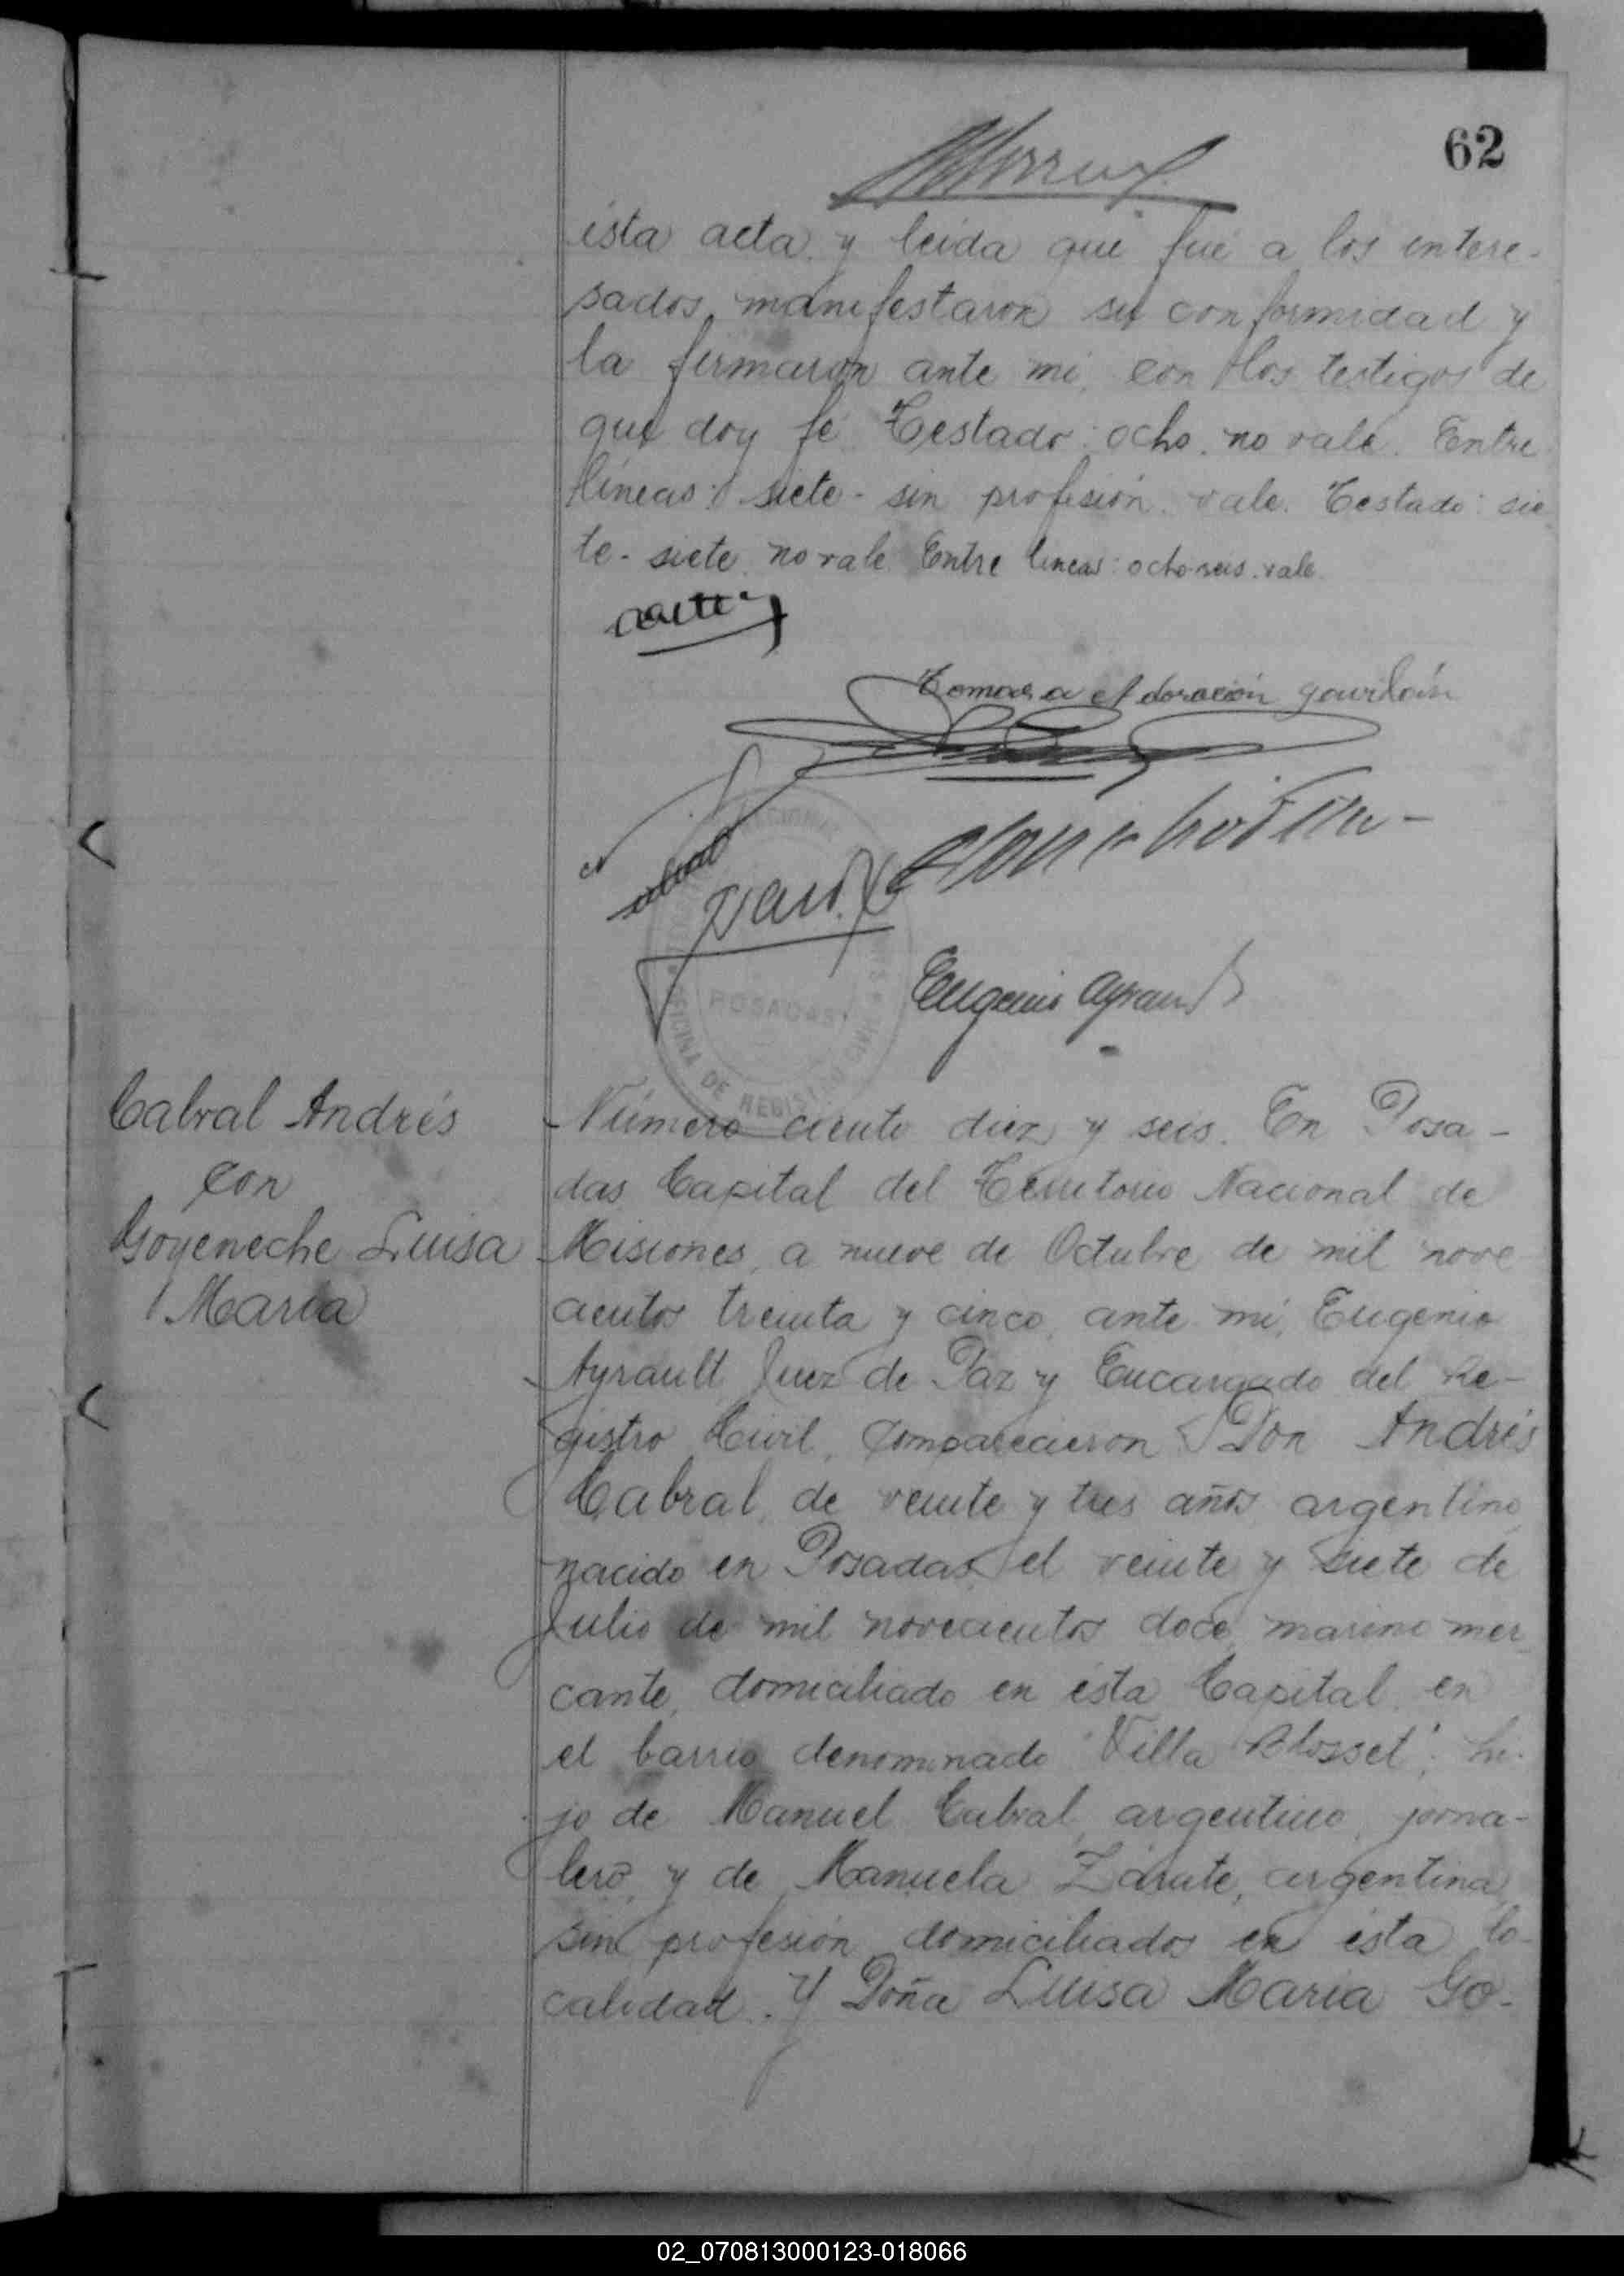 62
ésta acta y leida que fué a los intere-
sados, manifestaron su conformidad y
la firmaron ante mi, con los testigos de
que doy fé. Testado: ocho. no vale. Entre
líneas: siete - sin profesión. vale. Testado: sie
te - siete. no vale. Entre lineas: ocho-seis. vale.
Eugenio Ayrault
OFICINA DE REGISTRO CIVIL
POSADAS
Cabral Andrés
con
Goyeneche Luisa
María
Número ciento diez y seis. En Posa-
das, Capital del Territorio Nacional de
Misiones, a nueve de Octubre de mil nove
cientos treinta y cinco, ante mi, Eugenio
Ayrault Juez de Paz y Encargado del Re-
gistro Civil, comparecieron Don Andrés
Cabral, de veinte y tres años, argentino,
nacido en Posadas, el veinte y siete de
Julio de mil novecientos doce, marino mer
cante, domiciliado en ésta Capital, en
el barrio denominado "Villa Blosset", hi-
jo de Manuel Cabral, argentino, jorna-
lero, y de Manuela Zárate, argentina,
sin profesión, domiciliados en ésta lo-
calidad. Y Doña Luisa María Go-
02_070813000123-018066